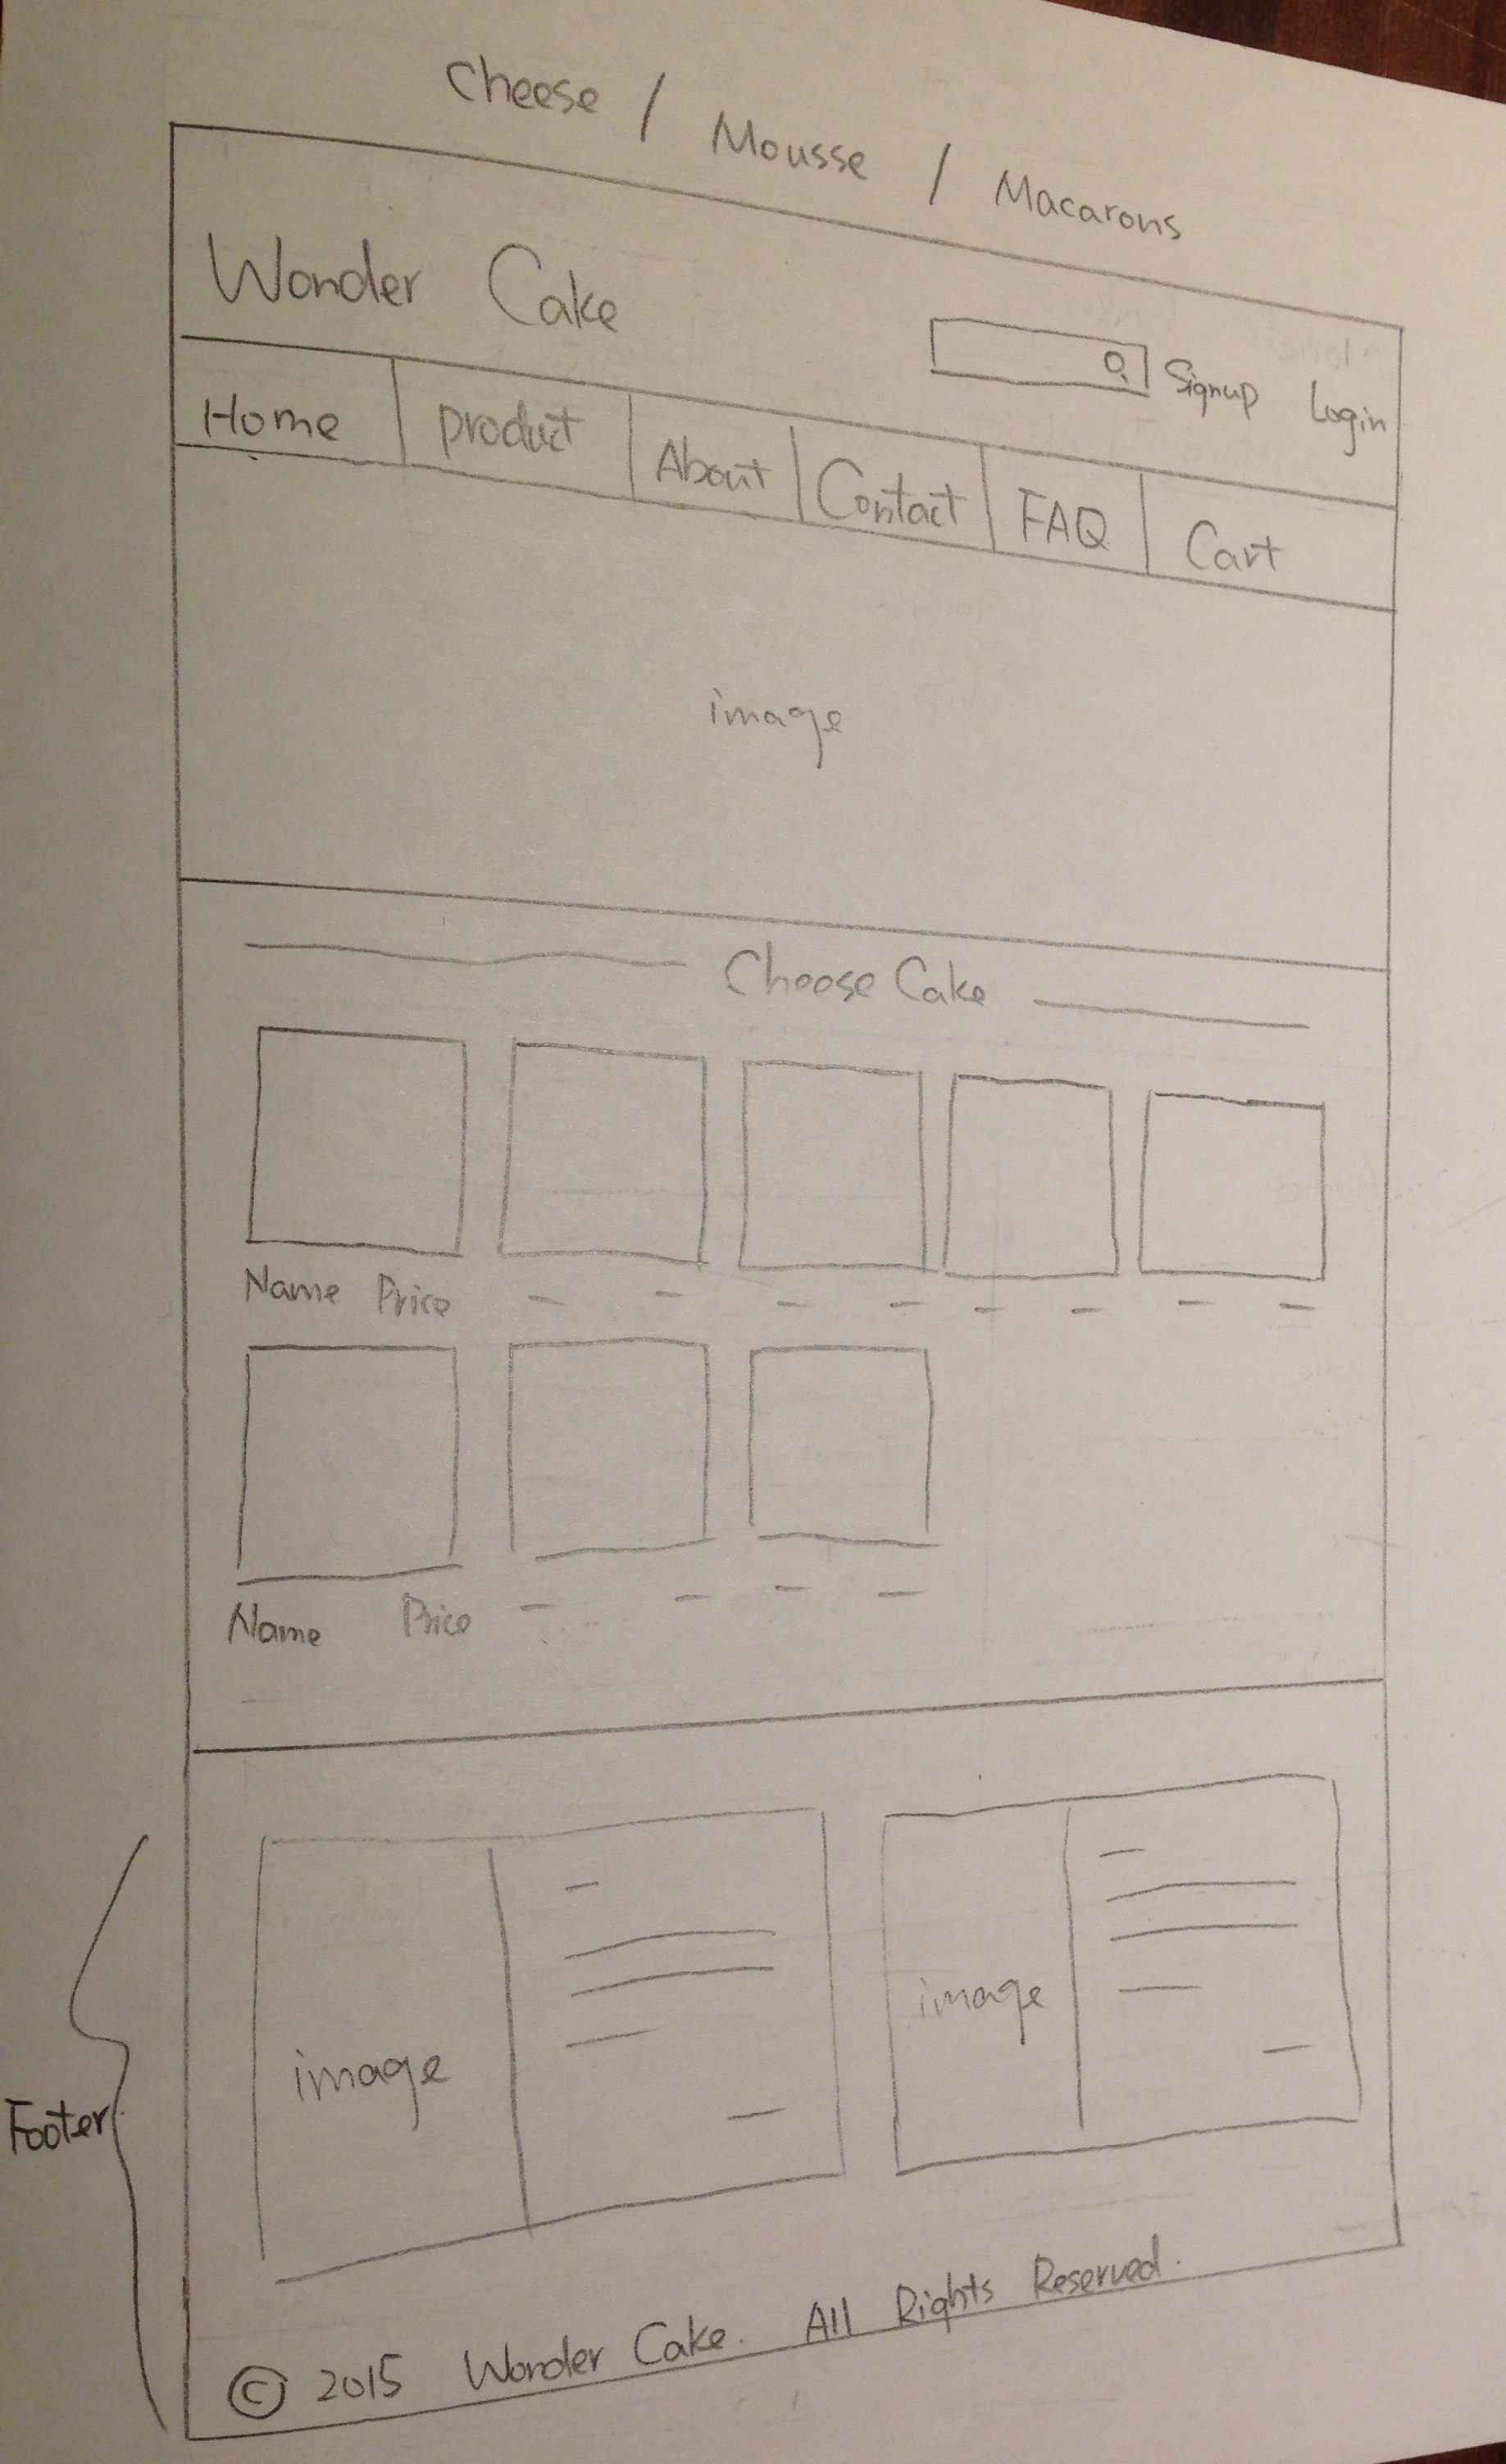 Cheese / Mousse / Macarons
Wonder Cake
Signup Login
Home product About Contact FAQ Cart
image
Choose Cake
Name Price
Name Price
image image
Footer
© 2015 Wonder Cake. All Rights Reserved.